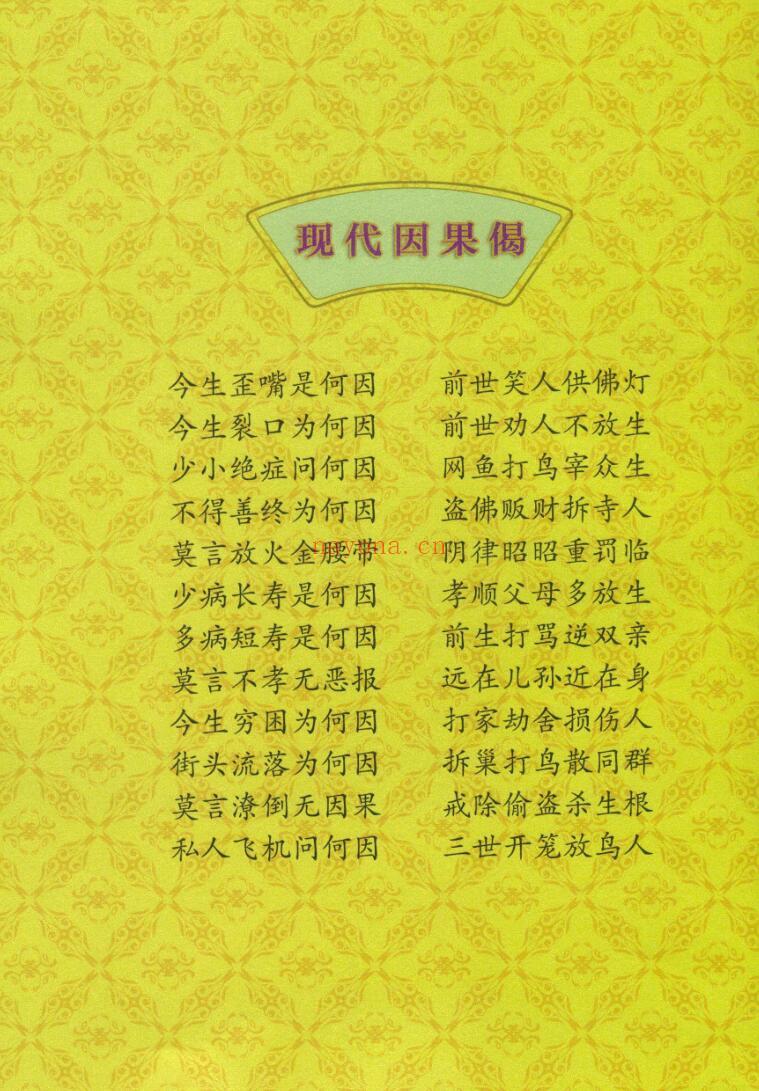 现代因果偈
今生歪嘴是何因 前世笑人供佛灯
今生裂口为何因 前世劝人不放生
少小绝症问何因 网鱼打鸟宰众生
不得善终为何因 盗佛贩财拆寺人
莫言放火金腰带 阴律昭昭重罚临
nayona.cn
少病长寿是何因 孝顺父母多放生
多病短寿是何因 前生打骂逆双亲
莫言不孝无恶报 远在儿孙近在身
今生穷困为何因 打家劫舍损伤人
街头流落为何因 拆巢打鸟散同群
莫言潦倒无因果 戒除偷盗杀生根
私人飞机问何因 三世开笼放鸟人